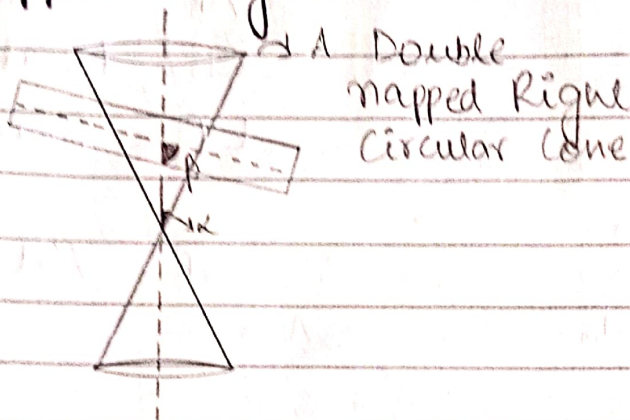 A Double
napped Right
Circular Cone
β
α